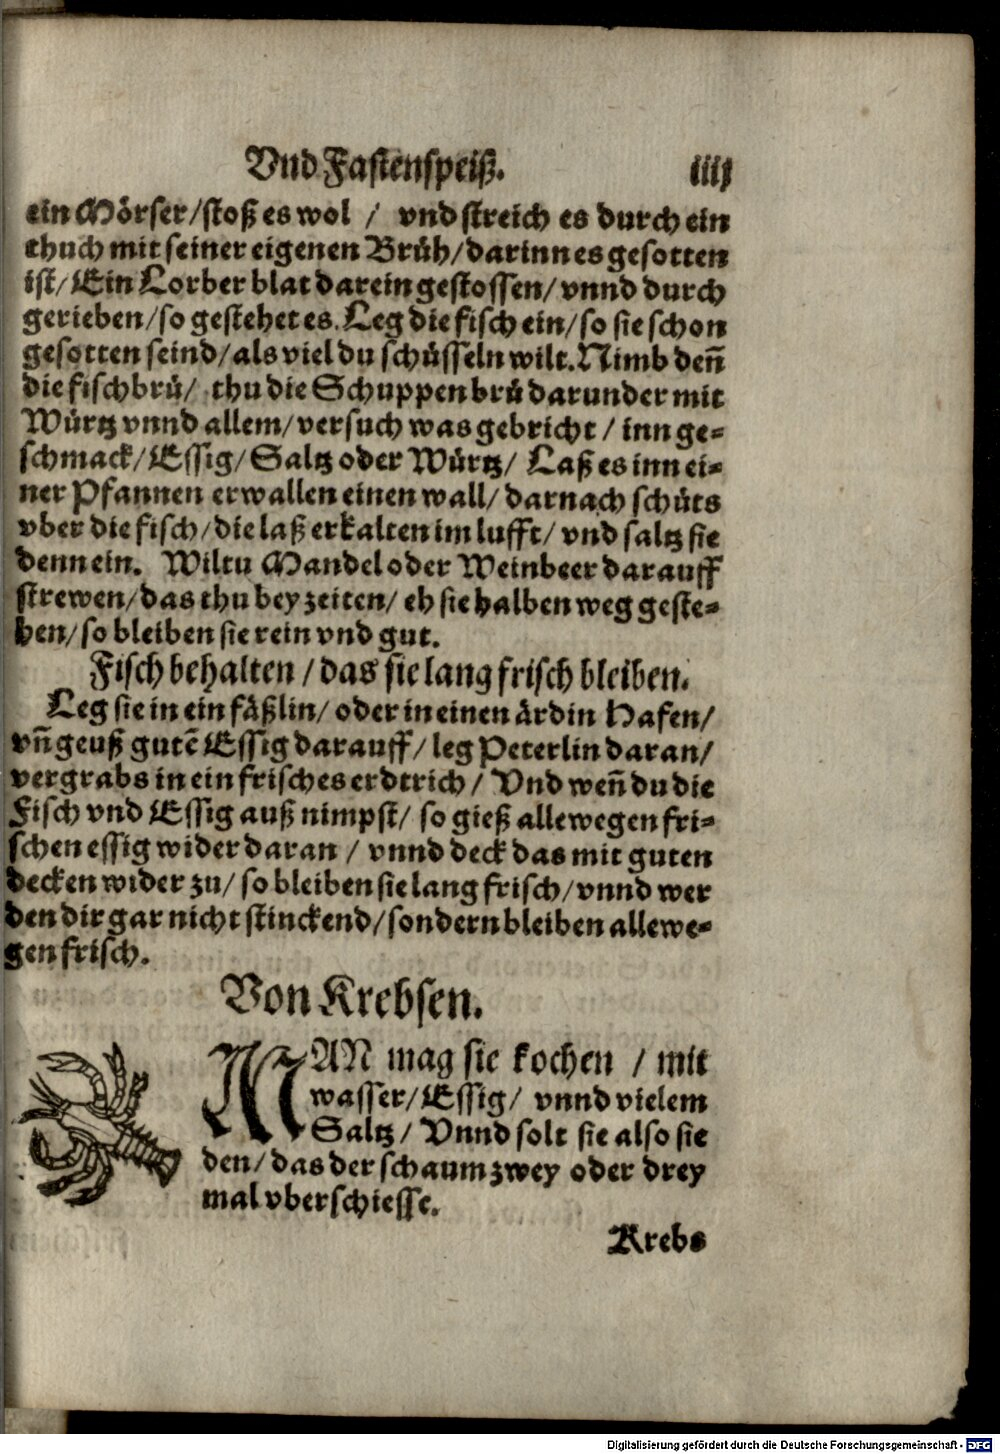 Vnd Fastenspeiß. iiij
ein Mörser/stoß es wol / vnd streich es durch ein
thuch mit seiner eigenen Brüh/darinn es gesotten
ist/Ein Lorber blat darein gestossen/vnnd durch
gerieben/so gestehet es. Leg die fisch ein/so sie schon
gesotten seind/als viel du schüsseln wilt. Nimb deñ
die fischbrü/ thu die Schuppen brü darunder mit
Würtz vnnd allem/versuch was gebricht / inn ge-
schmack/Essig/Saltz oder Würtz/ Laß es inn ei-
ner Pfannen erwallen einen wall/darnach schüts
vber die fisch/die laß erkalten im lufft/ vnd saltz sie
denn ein. Wiltu Mandel oder Weinbeer darauff
strewen/das thu bey zeiten/ eh sie halben weg geste-
hen/so bleiben sie rein vnd gut.
Fisch behalten / das sie lang frisch bleiben.
Leg sie in ein fäßlin/ oder in einen ärdin Hafen/
vñ geuß gutẽ Essig darauff/leg Peterlin daran/
vergrabs in ein frisches erdtrich/ Vnd weñ du die
Fisch vnd Essig auß nimpst/ so gieß allewegen fri-
schen essig wider daran / vnnd deck das mit guten
decken wider zu/ so bleiben sie lang frisch/vnnd wer
den dir gar nicht stinckend/sondern bleiben allewe-
gen frisch.
Von Krebsen.
MAN mag sie kochen / mit
wasser/Essig/ vnnd vielem
Saltz/ Vnnd solt sie also sie
den/das der schaum zwey oder drey
mal vberschiesse.
Krebs
Digitalisierung gefördert durch die Deutsche Forschungsgemeinschaft - DFG